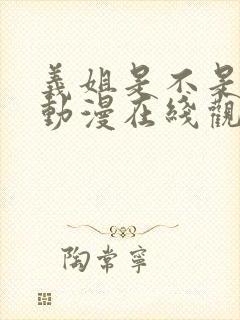 義姐是不是
動漫在綫觀
陶常寧